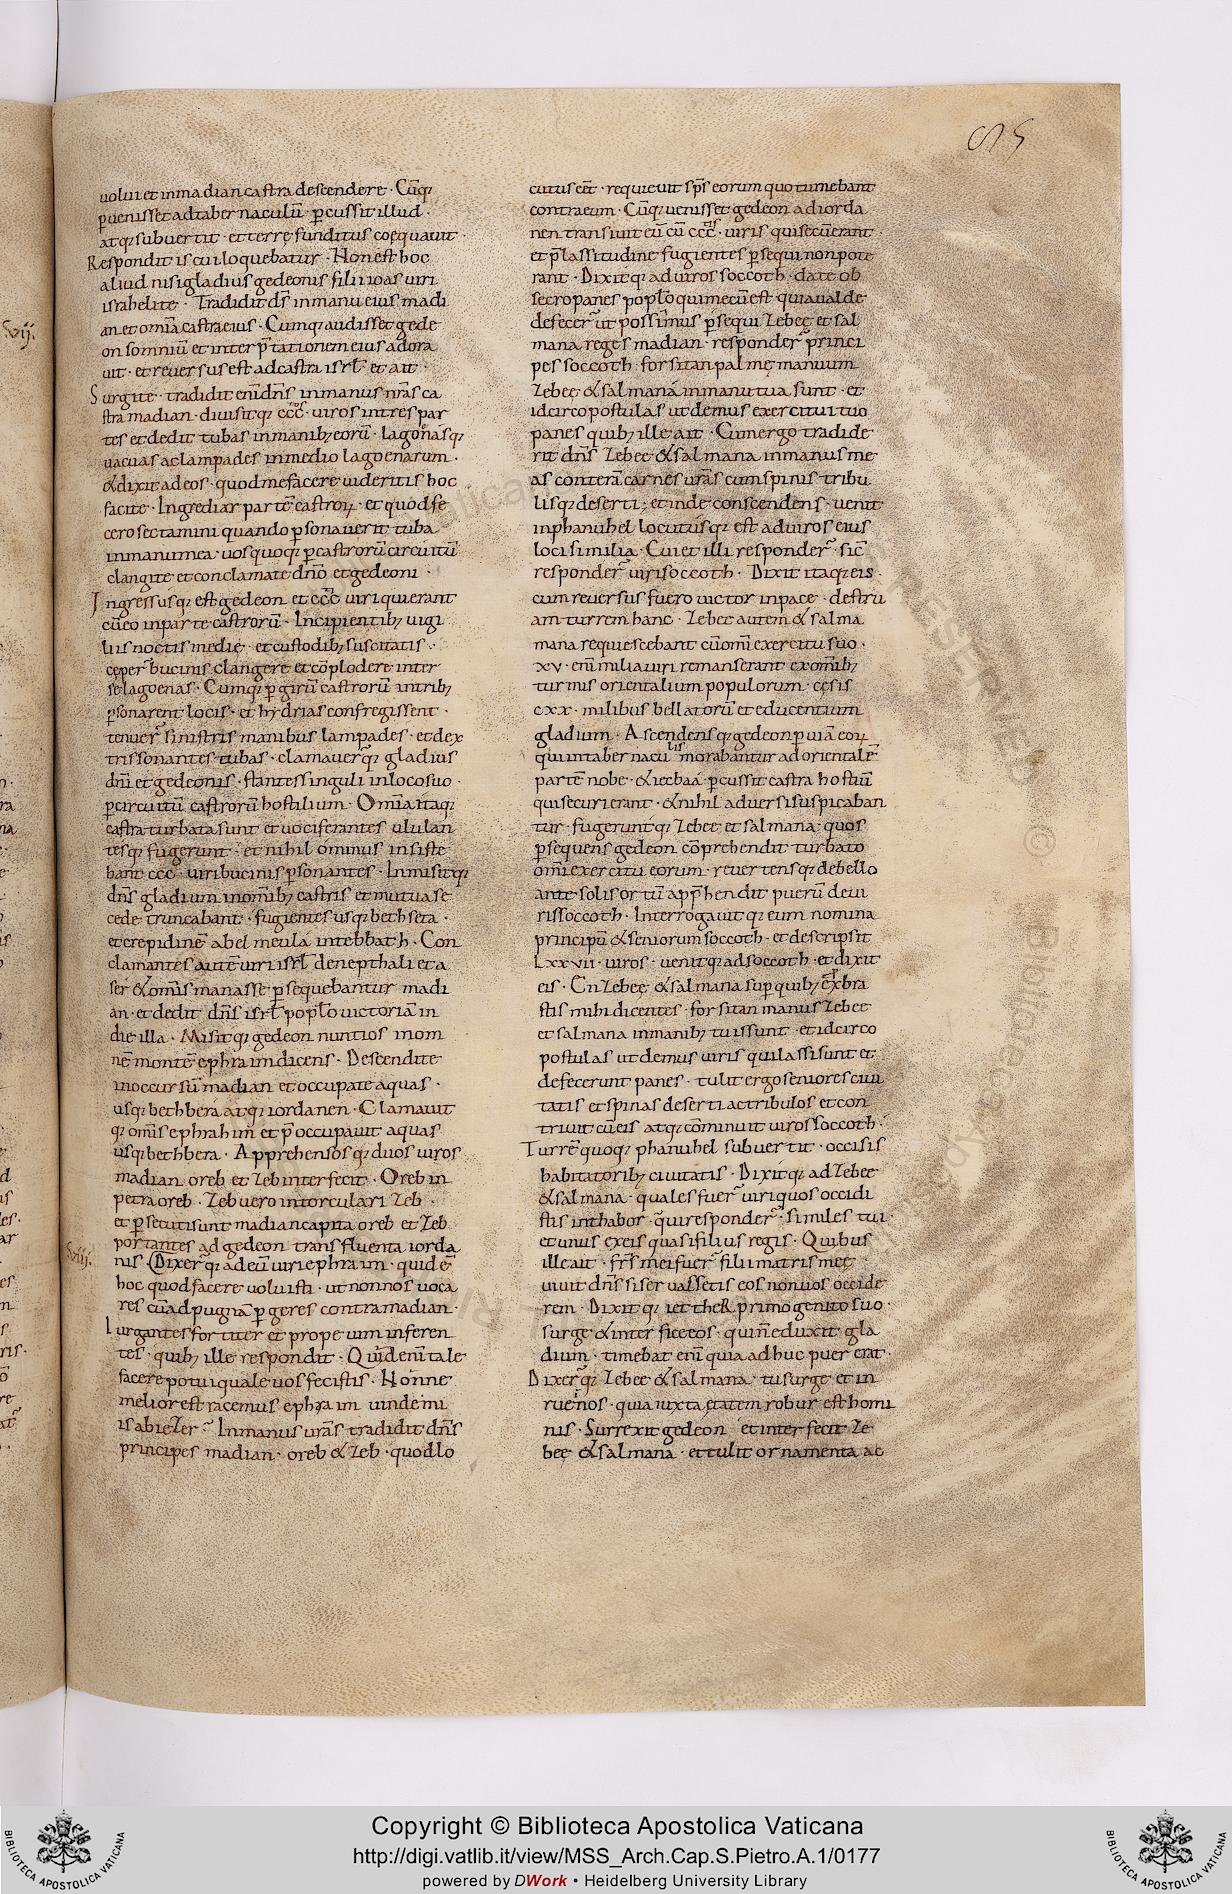 volui et in madian castra descendere · Cūq;
p̄uenisset ad tabernaculū · p̄cussit illud ·
atq; subuertit · et terrę funditus coęquauit ·
Respondit is cui loquebatur · Non est hoc
aliud nisi gladius gedeonis filii ioas uiri
israhelitę · Tradidit dn̄s in manu eius madi
an et om̄ia castra eius · Cumq; audisset gede
on somniū et interp̄tationem eius adora
uit · et reuersus est ad castra isrl̄ et ait ·
Surgite · tradidit eni dn̄s in manus nr̄as ca
stra madian · diuisitq; ccc uiros in tres par
tes et dedit tubas in manib; eorū · lagonasq;
uacuas ac lampades in medio lagoenarum ·
& dixit ad eos · quod me facere uideritis hoc
facite · Ingrediar partē castroꝝ · et quod fe
cero sectamini quando p̄sonauerit tuba
in manu mea uos quoq; p̄ castrorū circuitū
clangite et conclamate dn̄o et gedeoni ·
Ingressusq; est gedeon et ccc uiri qui erant
cū eo in parte castrorū · Incipientib; uigi
liis noctis medię · et custodib; suscitatis ·
ceper̄ bucinis clangere et cōplodere inter
se lagoenas · Cumq; p̄ girū castrorū in trib;
p̄sonarent locis · et hydrias confregissent ·
tenuer̄ sinistris manibus lampades · et dex
tris sonantes tubas · clamauer̄q; gladius
dn̄i et gedeonis · stantes singuli in loco suo ·
p̄ circuitū castrorū hostilium · Om̄ia itaq;
castra turbata sunt et uociferantes ululan
tesq; fugerunt · et nihil ominus insiste
bant ccc uiri bucinis p̄sonantes · Inmisitq;
dn̄s gladium in om̄ib; castris et mutua se
cede truncabant · fugientes usq; bethseta ·
et crepidinē abel meula in tebbath · Con
clamantes autē uiri isrl̄ de nepthali et a
ser & om̄is manasse p̄sequebantur madi
an · et dedit dn̄s isrl̄ popl̄o uictoriā in
die illa · Misitq; gedeon nuntios in om
nē montē ephraim dicens · Descendite
in occursū madian et occupate aquas ·
usq; bethbera atq; iordanen · Clamauit
q; om̄is ephrahim et p̄occupauit aquas
usq; bethbera · Apprehensosq; duos uiros
madian oreb et Zeb interfecit · Oreb in
petra oreb · Zeb uero in torculari Zeb ·
et p̄secuti sunt madian capita oreb et Zeb
portantes ad gedeon trans fluenta iorda
nis · Dixer̄q; ad eū uiri ephraim · quid ē
hoc quod facere uoluisti · ut non nos uoca
res cū ad pugnā p̄geres contra madian ·
Iurgantes fortiter et prope uim inferen
tes · quib; ille respondit · Quid eni tale
facere potui quale uos fecistis · Nonne
melior est racemus ephraim uindemi
is abieZer · In manus ur̄as tradidit dn̄s
principes madian · oreb & Zeb · quod lo
cutus cēt · requieuit sp̄s eorum quo tumebant
contra eum · Cūq; uenisset gedeon ad iorda
nen transiuit eū cū ccc · uiris qui secū erant ·
et p̄ lassitudine fugientes p̄sequi non pote
rant · Dixitq; ad uiros soccoth · date ob
secro panes popl̄o qui mecū est quia ualde
defecer̄ ut possimus p̄sequi Zebeę et sal
mana reges madian · responder̄ princi
pes soccoth · forsitan palmę manuum
Zebeę & salmana in manu tua sunt · et
idcirco postulas ut demus exercitui tuo
panes quib; ille ait · Cum ergo tradide
rit dn̄s Zebeę & salmana in manus me
as conterā carnes ur̄as cum spinis tribu
lisq; deserti; et inde conscendens · uenit
in phanuhel locutusq; est ad uiros eius
loci similia · Cui et illi responder̄ · sic̄
responder̄ uiri soccoth · Dixit itaq; eis ·
cum reuersus fuero uictor in pace · destru
am turrem hanc · Zebeę autem & salma
mana requiescebant cū om̄i exercitu suo ·
xv · eni milia uiri remanserant ex om̄ib;
turmis orientalium populorum · cęsis
cxx · milibus bellatorū et educentium
gladium · Ascendensq; gedeon p̄ uiā eoꝝ
qui in tabernaculis morabantur ad orientalē
partē nobe · & iecbaa p̄cussit castra hostiū
qui securi erant · & nihil aduersi suspicaban
tur · fugeruntq; Zebeę et salmana · quos
p̄sequens gedeon cōprehendit turbato
om̄i exercitu eorum · reuertensq; de bello
ante solis ortū app̄hendit puerū de ui
ris soccoth · Interrogauitq; eum nomina
principū & seniorum soccoth · et descripsit
Lxxvii · uiros · uenitq; ad soccoth · et dixit
eis · En Zebeę & salmana sup̄ quib; exbra
stis mihi dicentes · forsitan manus Zebeę
et salmana in manib; tuis sunt · et idcirco
postulas ut demus uiris qui lassi sunt et
defecerunt panes · tulit ergo seniores ciui
tatis et spinas deserti ac tribulos et con
triuit cū eis atq; cōminuit uiros soccoth ·
Turrē quoq; phanuhel subuertit · occisis
habitatorib; ciuitatis · Dixitq; ad Zebeę
& salmana · quales fuer̄ uiri quos occidi
stis in thabor · qui responder̄ · similes tui ·
et unus ex eis quasi filius regis · Quibus
ille ait · fr̄s mei fuer̄ filii matris meę
uiuit dn̄s si seruassetis eos non uos occide
rem · Dixitq; ietheR primogenito suo ·
surge & interfice eos · qui n̄ eduxit gla
dium · timebat eni quia adhuc puer erat ·
Dixer̄q; Zebeę & salmana · tu surge et in
rue in nos · quia iuxta ętatem robur est homi
nis · Surrexit gedeon et interfecit Ze
beę & salmana · et tulit ornamenta ac
vij.
viii.
Copyright © Biblioteca Apostolica Vaticana
http://digi.vatlib.it/view/MSS_Arch.Cap.S.Pietro.A.1/0177
powered by DWork • Heidelberg University Library
BIBLIOTECA APOSTOLICA VATICANA
BIBLIOTECA APOSTOLICA VATICANA